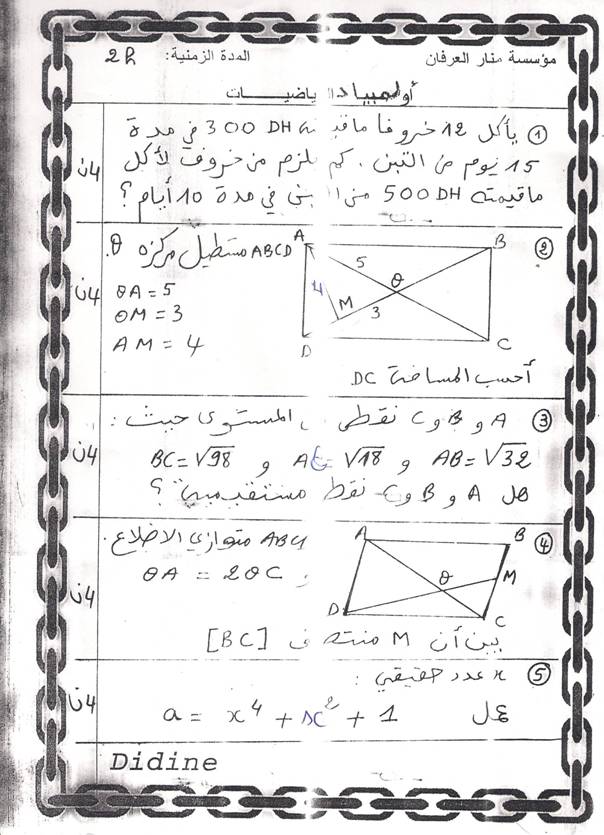 مؤسسة منار العرفان
المدة الزمنية: 2h
أولمبياد الرياضيات
① يأكل 12 خروفا ما قيمته 300 DH في مدة
15 يوم من التبن. كم يلزم من خروف لأكل
ما قيمته 500 DH من التبن في مدة 10 أيام؟
4ن
② ABCD مستطيل مركزه θ.
θA = 5
θM = 3
AM = 4
A
B
5
θ
4
M
3
D
C
أحسب المسافة DC
4ن
③ A و B و C نقط من المستوى حيث:
AB = √32 و AC = √18 و BC = √98
هل A و B و C نقط مستقيمية؟
4ن
④ متوازي الاضلاع.
و θA = 2θC
A
B
θ
M
D
C
بين أن M منتصف [BC]
4ن
⑤ x عدد حقيقي:
عمل a = x⁴ + x² + 1
4ن
Didine